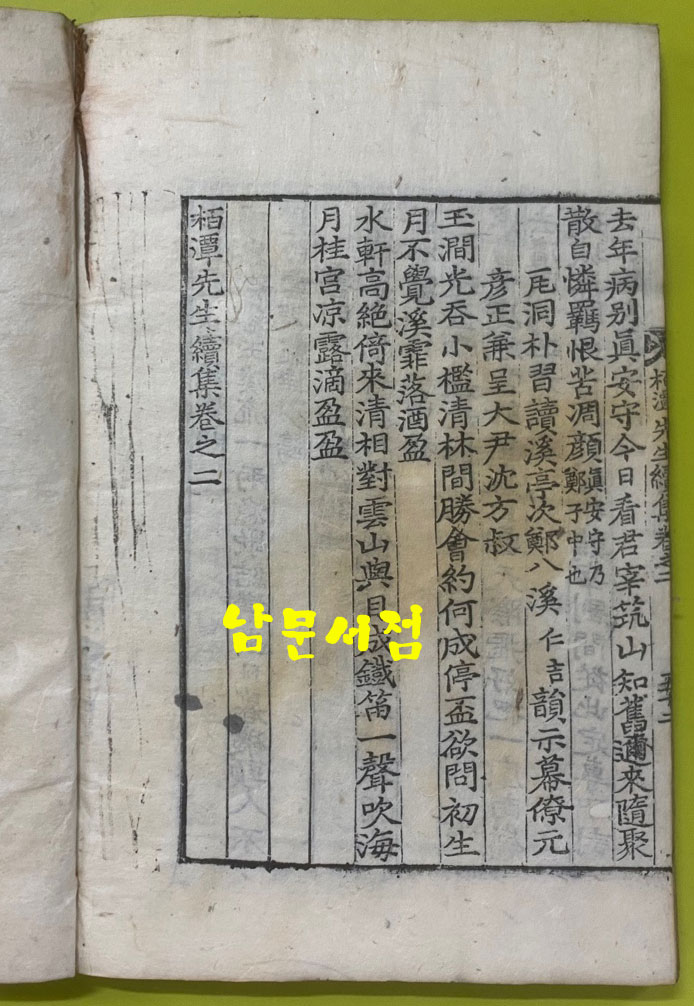 去年病别眞安守今日看君宰筑山知舊邇來隨聚
散自憐羈恨苦凋顔眞安守乃鄭子中也
厇洞朴習讀溪亭次鄭八溪仁吉韻示幕僚元
彦正兼呈大尹沈方叔
玉澗光呑小檻清林間勝會約何成停盃欲問初生
月不覺溪霏落酒盈
水軒高絶倚來清相對雲山與目成鐵笛一聲吹海
月桂宮凉露滴盈盈
栢潭先生續集卷之二
栢潭先生續集卷之二 五十二
남문서점